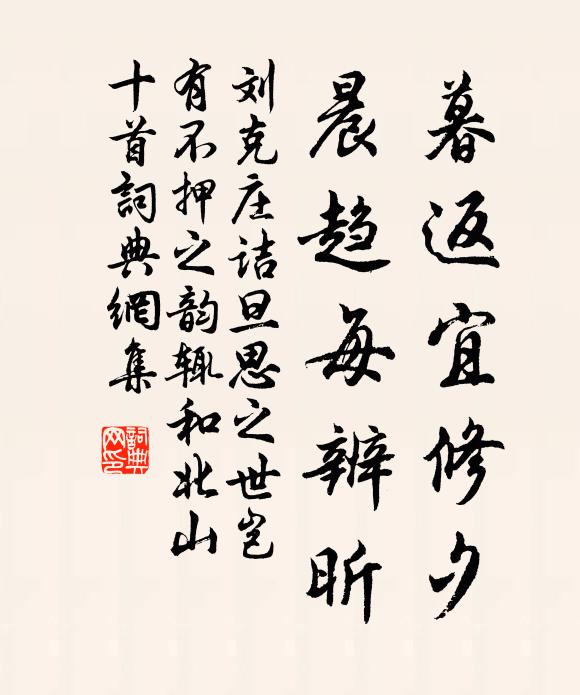 暮返宜修夕
晨趋每辨昕
刘克庄诘旦思之世岂
有不押之韵辄和北山
十首詞典網集
詞典
网印